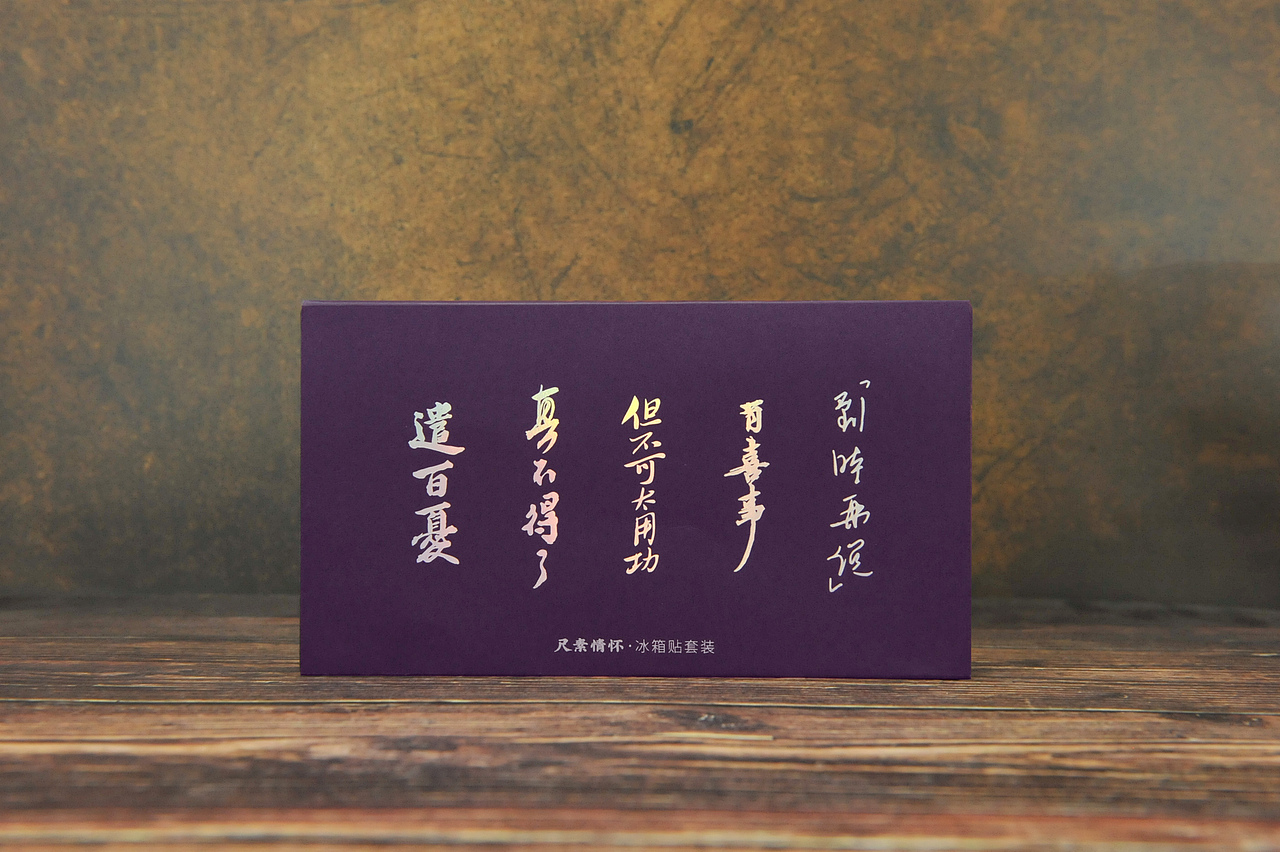 「到時再説」
有喜事
但不可太用功
真不得了
遣百憂
尺素情怀·冰箱贴套装